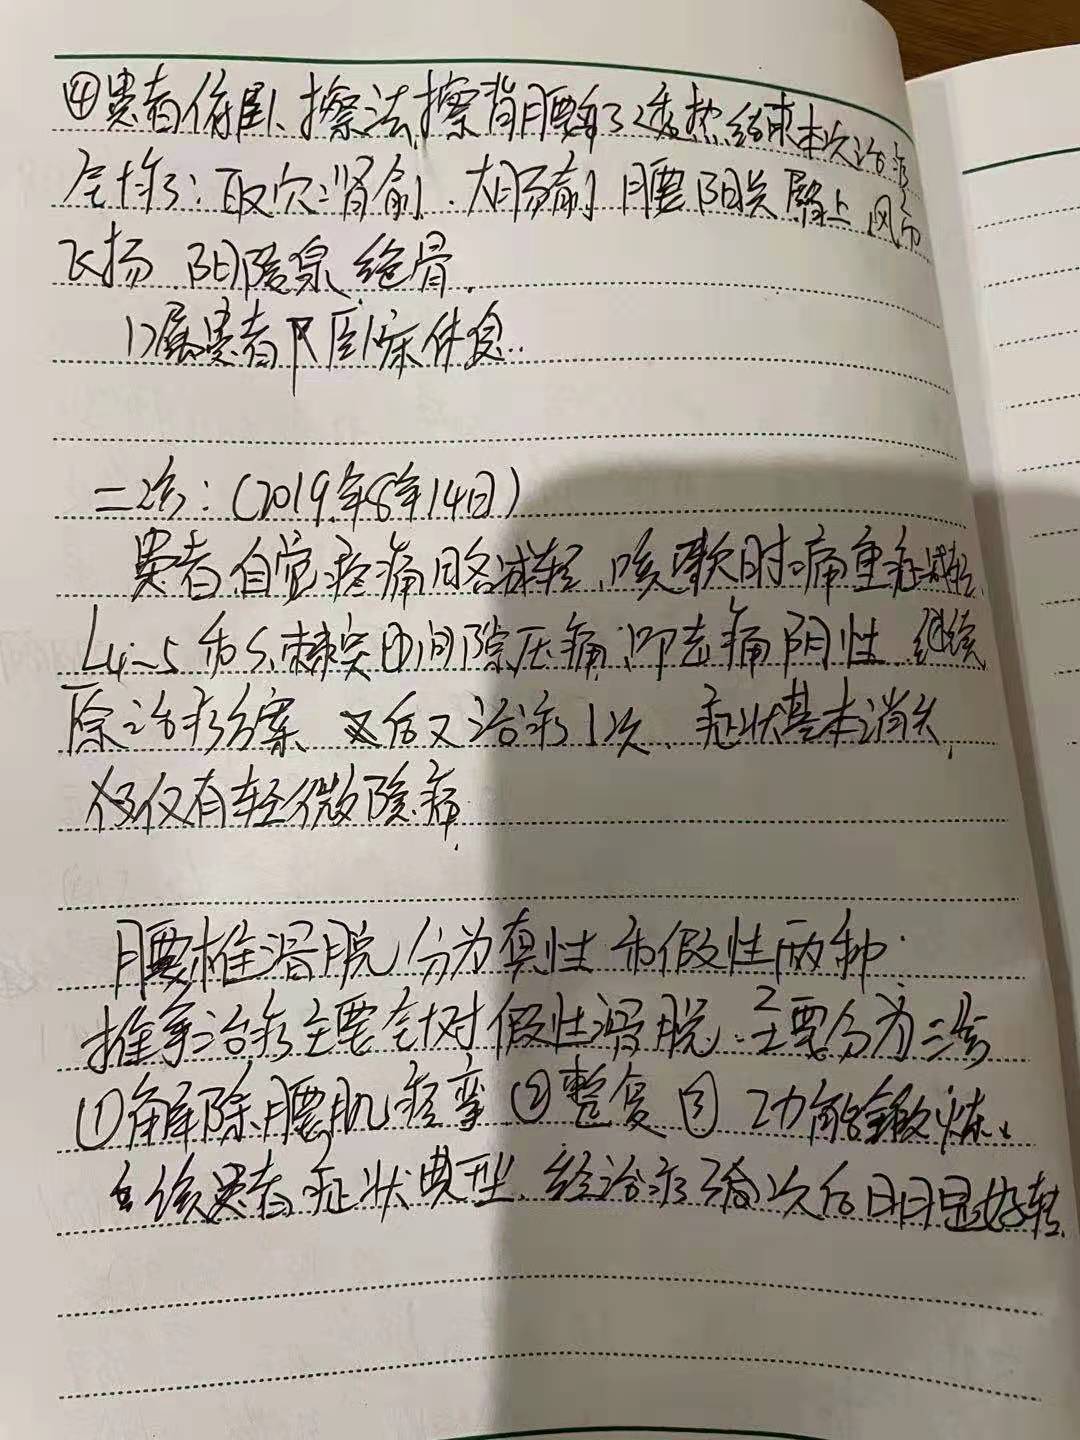 ④患者俯卧、擦法擦背腰部了透热结束本次治疗
针推疗：取穴：肾俞、大肠俞 腰阳关 臀上 风市
飞扬 阳陵泉 绝骨.
1)嘱患者 卧床休息.
二诊：(2019.年8年14日)
患者自觉疼痛略减轻、咳嗽时痛重症减轻.
L4-5和S1棘突间隙压痛,叩击痛阴性 继续
原治疗方案、又后又治疗1次、症状基本消失,
仅仅有轻微隐痛.
腰椎滑脱分为真性和假性两种.
推拿治疗主要针对假性滑脱.主要分为三步
①解除腰肌痉挛②整复③功能锻炼、
该患者症状典型.经治疗 次后明显好转.